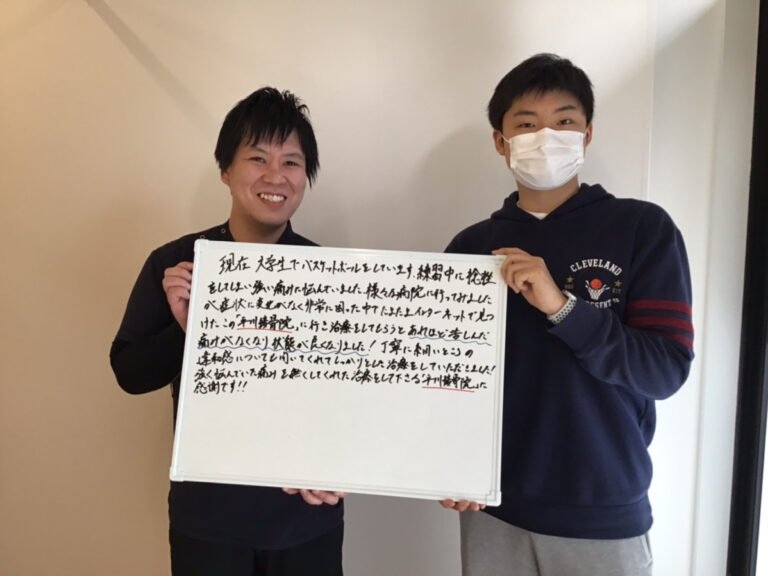 現在 大学生でバスケットボールをしています。練習中に捻挫
をしてしまい強い痛みに悩んでいました。様々な病院に行ってみました
が症状に変化がなく非常に困った中でたまたまインターネットで見つ
けたこの「平川接骨院」に行き治療をしてもらうとあれほど苦しんだ
痛みがなくなり状態が良くなりました！丁寧に細いところの
違和感についても聞いてくれてしっかりとした治療をしていただきました！
強く悩んでいた痛みを無くしてくれた治療をして下さる「平川接骨院」に
感謝です!!
CLEVELAND